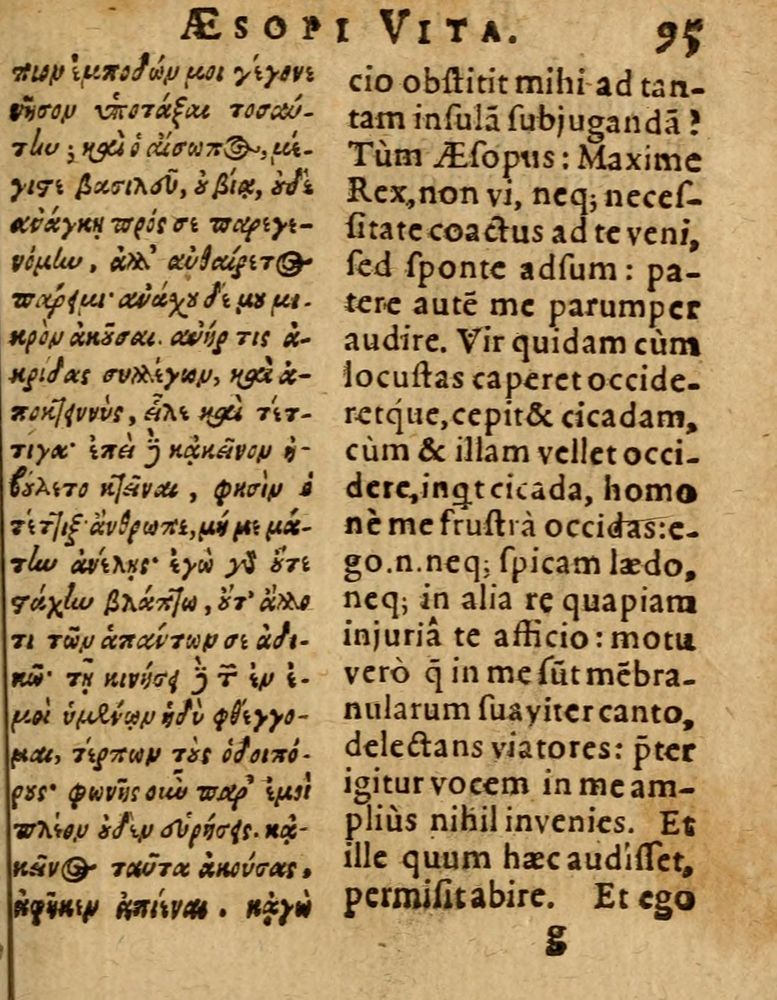 ÆSOPI VITA. 95
πιον ἐμποδών μοι γέγονε
νῆσον ὑποτάξαι τοσαύ-
την; καὶ ὁ αἴσωπος, μέ-
γιστε βασιλεῦ, οὐ βίᾳ, οὐδὲ
ἀνάγκῃ πρός σε παρεγε-
νόμην, ἀλλ' αὐθαίρετος
πάρειμι· ἀνάχου δέ μου μι-
κρὸν ἀκοῦσαι. ἀνήρ τις ἀ-
κρίδας συλλέγων, καὶ ἀ-
ποκτειννὺς, εἷλε καὶ τέτ-
τιγα· ἐπεὶ δὲ κἀκεῖνον ἠ-
βούλετο κτεῖναι, φησὶν ὁ
τέττιξ· ἄνθρωπε, μή με μά-
την ἀνέλῃς· ἐγὼ γὰρ οὔτε
στάχυν βλάπτω, οὔτ' ἄλλο
τι τῶν ἁπάντων σε ἀδι-
κῶ· τῇ κινήσει δὲ τῶν ἐν ἐ-
μοὶ ὑμένων ἡδὺ φθέγγο-
μαι, τέρπων τοὺς ὁδοιπό-
ρους· φωνῆς οὖν παρ' ἐμοὶ
πλέον οὐδὲν εὑρήσεις. κἀ-
κεῖνος ταῦτα ἀκούσας,
ἀφῆκεν ἀπιέναι. κἀγὼ
cio obſtitit mihi ad tan-
tam inſulã ſubjugandã?
Tùm Æſopus: Maxime
Rex, non vi, neq; neceſ-
ſitate coactus ad te veni,
ſed ſponte adſum: pa-
tere autẽ me parumper
audire. Vir quidam cùm
locuſtas caperet occide-
retq́ue, cepit & cicadam,
cùm & illam vellet occi-
dere, inqt cicada, homo
nè me fruſtrà occidas: e-
go .n. neq; ſpicam lædo,
neq; in alia re quapiam
injuriâ te afficio: motu
verò q̄ in me ſũt mẽbra-
nularum ſuaviter canto,
delectans viatores: p̄ter
igitur vocem in me am-
pliùs nihil invenies. Et
ille quum hæc audiſſet,
permiſit abire. Et ego
g